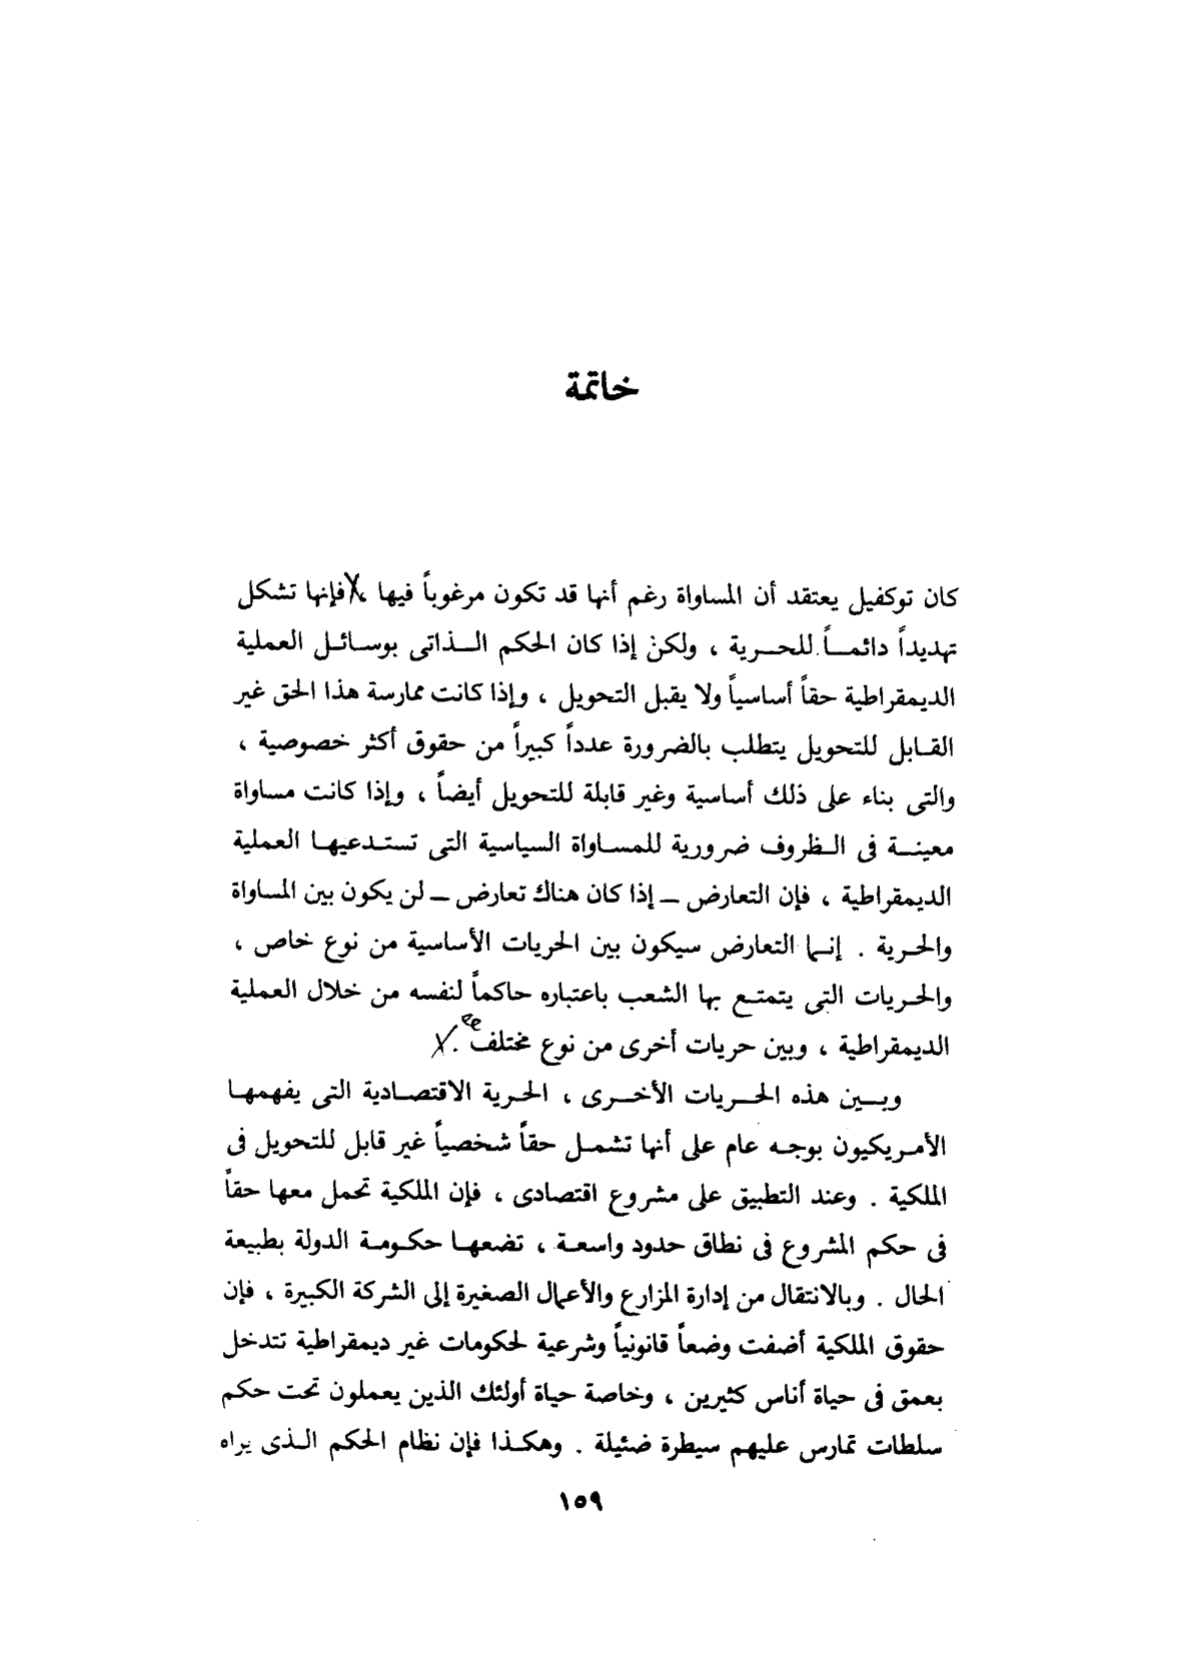 خاتمة
كان توكفيل يعتقد أن المساواة رغم أنها قد تكون مرغوباً فيها ، فإنها تشكل
تهديداً دائمـــاً للحـــرية ، ولكن إذا كان الحكم الـــذاتى بوسـائـل العملية
الديمقراطية حقاً أساسياً ولا يقبل التحويل ، وإذا كانت ممارسة هذا الحق غير
القـابل للتحويل يتطلب بالضرورة عدداً كبيراً من حقوق أكثر خصوصية ،
والتى بناء على ذلك أساسية وغير قابلة للتحويل أيضاً ، وإذا كانت مساواة
معينـــة فى الـظروف ضرورية للمسـاواة السياسية التى تستـدعيهـا العملية
الديمقراطية ، فإن التعارض ــ إذا كان هناك تعارض ــ لن يكون بين المساواة
والحـرية . إنـما التعارض سيكون بين الحريات الأساسية من نوع خاص ،
والحـريات التى يتمتـع بها الشعب باعتباره حاكماً لنفسه من خلال العملية
الديمقراطية ، وبين حريات أخرى من نوع مختلف .
وبـــين هذه الحـــريات الأخـــرى ، الحـرية الاقتصـادية التى يفهمهـا
الأمـريكيون بوجـه عام على أنها تشمـل حقاً شخصياً غير قابل للتحويل فى
الملكية . وعند التطبيق على مشروع اقتصادى ، فإن الملكية تحمل معها حقاً
فى حكم المشروع فى نطاق حدود واسعـة ، تضعهـا حكـومـة الدولة بطبيعة
الحال . وبالانتقال من إدارة المزارع والأعمال الصغيرة إلى الشركة الكبيرة ، فإن
حقوق الملكية أضفت وضعاً قانونياً وشرعية لحكومات غير ديمقراطية تتدخل
بعمق فى حياة أناس كثيرين ، وخاصة حياة أولئك الذين يعملون تحت حكم
سلطات تمارس عليهم سيطرة ضئيلة . وهكـذا فإن نظام الحكم الـذى يراه
١٥٩